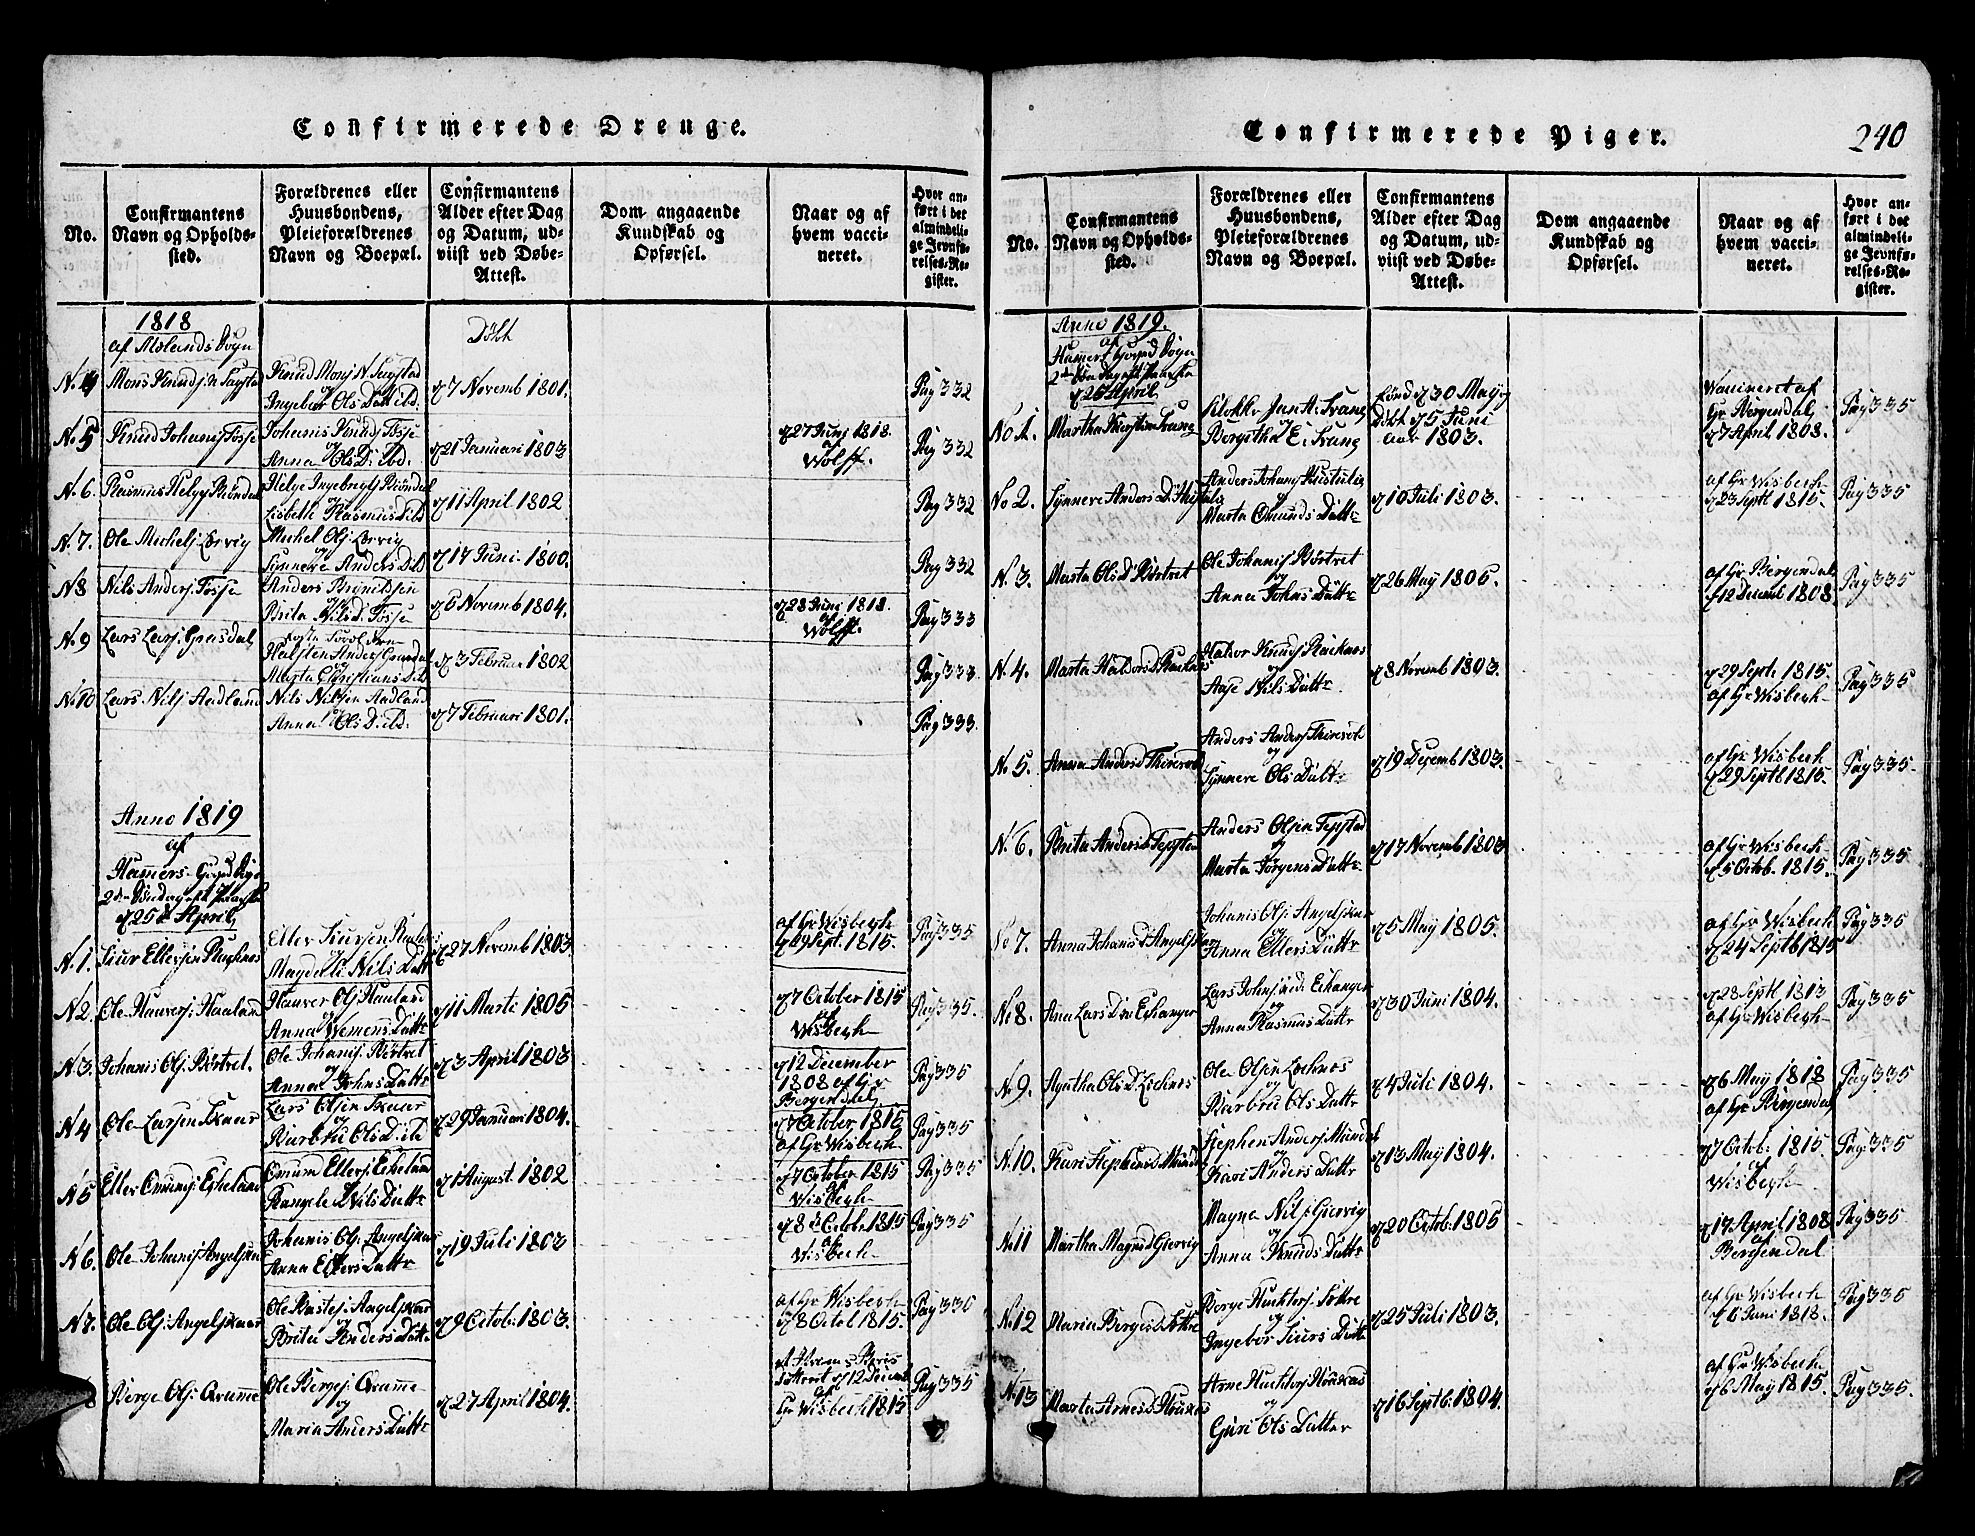 Confirmerede Drenge.
No.
Confirmantens Navn og Opholds-sted.
Forældrenes eller Huusbondens, Pleieforældrenes Navn og Boepæl.
Confirmantens Alder efter Dag og Datum, ud-viist ved Døbe-Attest.
Dom angaaende Kundskab og Opførsel.
Naar og af hvem vacci-neret.
Hvor an-ført i det almindeli-ge Jevnfø-relses-Re-gister.
1818
af Mølands Sogn
Døbt
N. 4 Mons Knuds: Sagstad
Knud Monss: Sagstad og Ingebor Ols Datt ibd.
d 7 Novemb 1801.
Pag 332
N. 5 Knud Johanis: Fosse
Johanis Knuds: Fosse og Anna Ols D: ibd.
d 21 Januari 1803
d 27 Junj 1818. af Wolff.
Pag 332
N. 6. Rasmus Helges:
Helge Ingebregts: og Lisbeth Rasmus D ibd
d 11 April 1802
Pag 332
N. 7. Ole Michels:
Michel Ols: og Synneve Anders D ibd
d 17 Juni. 1800.
Pag 332
N 8 Nils Anders: Fosse
Anders og Brita Nilsd: Fosse
d 6 Novemb 1804.
d 28 Junj 1818. af Wolff.
Pag 333
N. 9 Lars Lars:
Halsten Anders og Marta Christians D ibd
d 3 Februar 1802
Pag 333
N. 10 Lars Nils: Aadland
Nils Nilsen Aadland og Anna Ols D: ibd:
d 7 Februari 1801.
Pag 333.
Anno 1819
af
Hamers
d 25d April
N. 1. Siur Ellersen Raknes
Eller Siursen Raknes Magdeli Nils Datt
d 27 Novemb 1803
af Hr Wisbech d 29 Sept. 1815.
Pag 335
N 2. Ole Havers: Haaland
Haver Ols: Haaland og Anna Datt
d 11 Marti 1805
d 7 October 1815 af Wisbegh
Pag 335.
N. 3. Johanis Ols: Børtvet.
Ole Johanis: Børtvet og Anna Johns Datt
d 3 April 1803
d 12 December 1808 af Hr Bergendal
Pag 335
N 4 Ole Larsen Skaar
Lars Olsen Skaar og Barbru Ols D: ibd
d 29 Januari 1804.
d 7 October 1815 af Hr Wisbech
Pag 335
N 5 Eller Omunds: Eikeland
Omun Ellers: Eikeland Nils Datt
d 1 August. 1802
d 7 October 1815 af Wisbegh
Pag 335
N 6. Ole Johanis: Angelskaar
Johanis Ols: Angelskaar Anna Ellers Datt
d 19 Juli 1803
d 8 Octobr 1815 af Wisbech
Pag 335
N 7. Ole Ols: Angelskaar
Ole Angelskaar og Brita Anders Datt
d 9 Octob: 1803.
af Hr Wisbegh d 8 Octob 1815.
Pag 336
8 Berge Ols: Qvamme
Ole Berges: Qvamme og Maria Anders Datt
d 27 April 1804.
d 12 Decemb af Hr Wisbech 1815
Pag 335
Confirmerede Piger.
240
No.
Confirmantens Navn og Opholds-sted.
Forældrenes eller Huusbondens, Pleieforældrenes Navn og Boepæl.
Confirmantens Alder efter Dag og Datum, ud-viist ved Døbe-Attest.
Dom angaaende Kundskab og Opførsel.
Naar og af hvem vacci-neret.
Hvor an-ført i det almindeli-ge Jevnfø-relses-Re-gister.
Anno 1819.
af
d 25 April
No 1. Martha Kirstin Frang
Klokker Jan H: Frang og Bergitha E: Frang
fønd d 30 May og døbt d 5 Juni aar 1803.
Vaccineret af Hr Bergendal d 7 April 1808.
Pag 335
No 2. Synneve Anders D
Anders Johans: og Marta Omunds Datt
d 10 Juli 1803.
af Hr Wisbech d 23 Sept 1815.
Pag 335
N. 3. Marta Ols D Børtvet
Ole Johanis: Børtvet og Anna Johns Datt
d 26 May 1805.
af Hr Bergendal d 12 Decemb 1808.
Pag 335
N. 4. Marta Halvors D Raknes
Halvor Knuds: Raknes og Aase Nils Datt
d 8 Novemb 1803.
d 29 Sept: 1815. af Hr Wisbegh
Pag 335
N. 5. Anna Anders D
Anders Anders: og Synneve Ols Datt
d 19 Decemb 1803.
af Hr Wisbech d 29 Sept 1815.
Pag 335.
N. 6. Brita Anders D
Anders Olsen og Marta Jørgens Datt
d 17 Novemb 1803
af Hr Wisbech d 5 Octob. 1815.
Pag 335
No 7. Anna Johanis D Angelskaar
Johanis Ols: Angelskaar og Anna Ellers Datt
d 5 May 1805.
af Hr Wisbech d 24 Septb 1815
Pag 335
No 8. Ana Lars D Eichanger
Lars Johns: Eichanger og Anna Rasmus Datt
d 30 Juni 1804.
d 28 Sept 1813 af Hr Wisbegh
Pag 335
N. 9. Agatha Ols D.
Ole Olsen og Barbru Ols Datt
d 4 Juli 1804.
d 6 May 1818 af Hr Bergendal
Pag 335
N. 10. Kari Stephens D
Stephen Anders: og Kari Anders Datt
d 13 May 1804.
d 7 Octob: 1815. af Wisbegh
Pag 335
No 11 Martha Magnes D Giervig
Magne Nils: Giervig og Anna Knuds Datt
d 20 Octob: 1805
d 17 April 1808 af Bergendal
Pag 335
No 12 Maria Berges D
Berge og Ingebor Siurs Datt
d 25 Juli 1803.
af Hr Wisbech d 6 Juni 1818.
Pag 335
N. 13 Marta Arnes D
Arne og Guri Ols Datter
d 16 Septb: 1804.
af Hr Wisbech d 6 May 1815.
Pag 335.